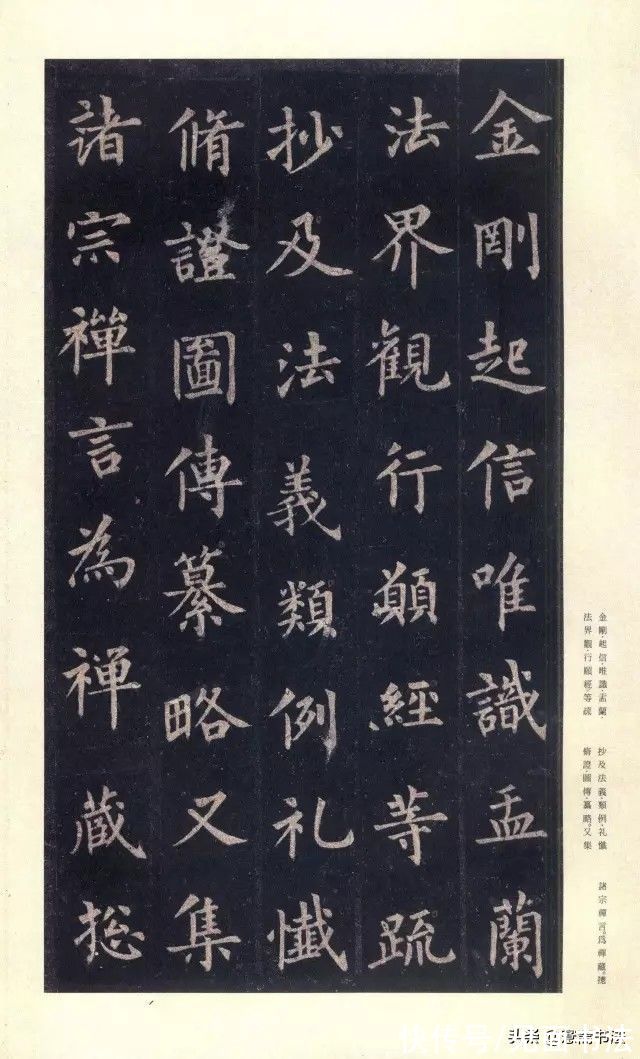 金剛起信唯識盂蘭
法界觀行願經等疏
抄及法義類例礼懺
脩證圖傳纂略又集
諸宗禪言為禪藏捴
金剛、起信、唯識、盂蘭
法界觀、行願經等疏
抄及法義類例、礼懺
脩證、圖傳、纂略。又集
諸宗禪言。為禪藏。捴
快传号/
头条
书法